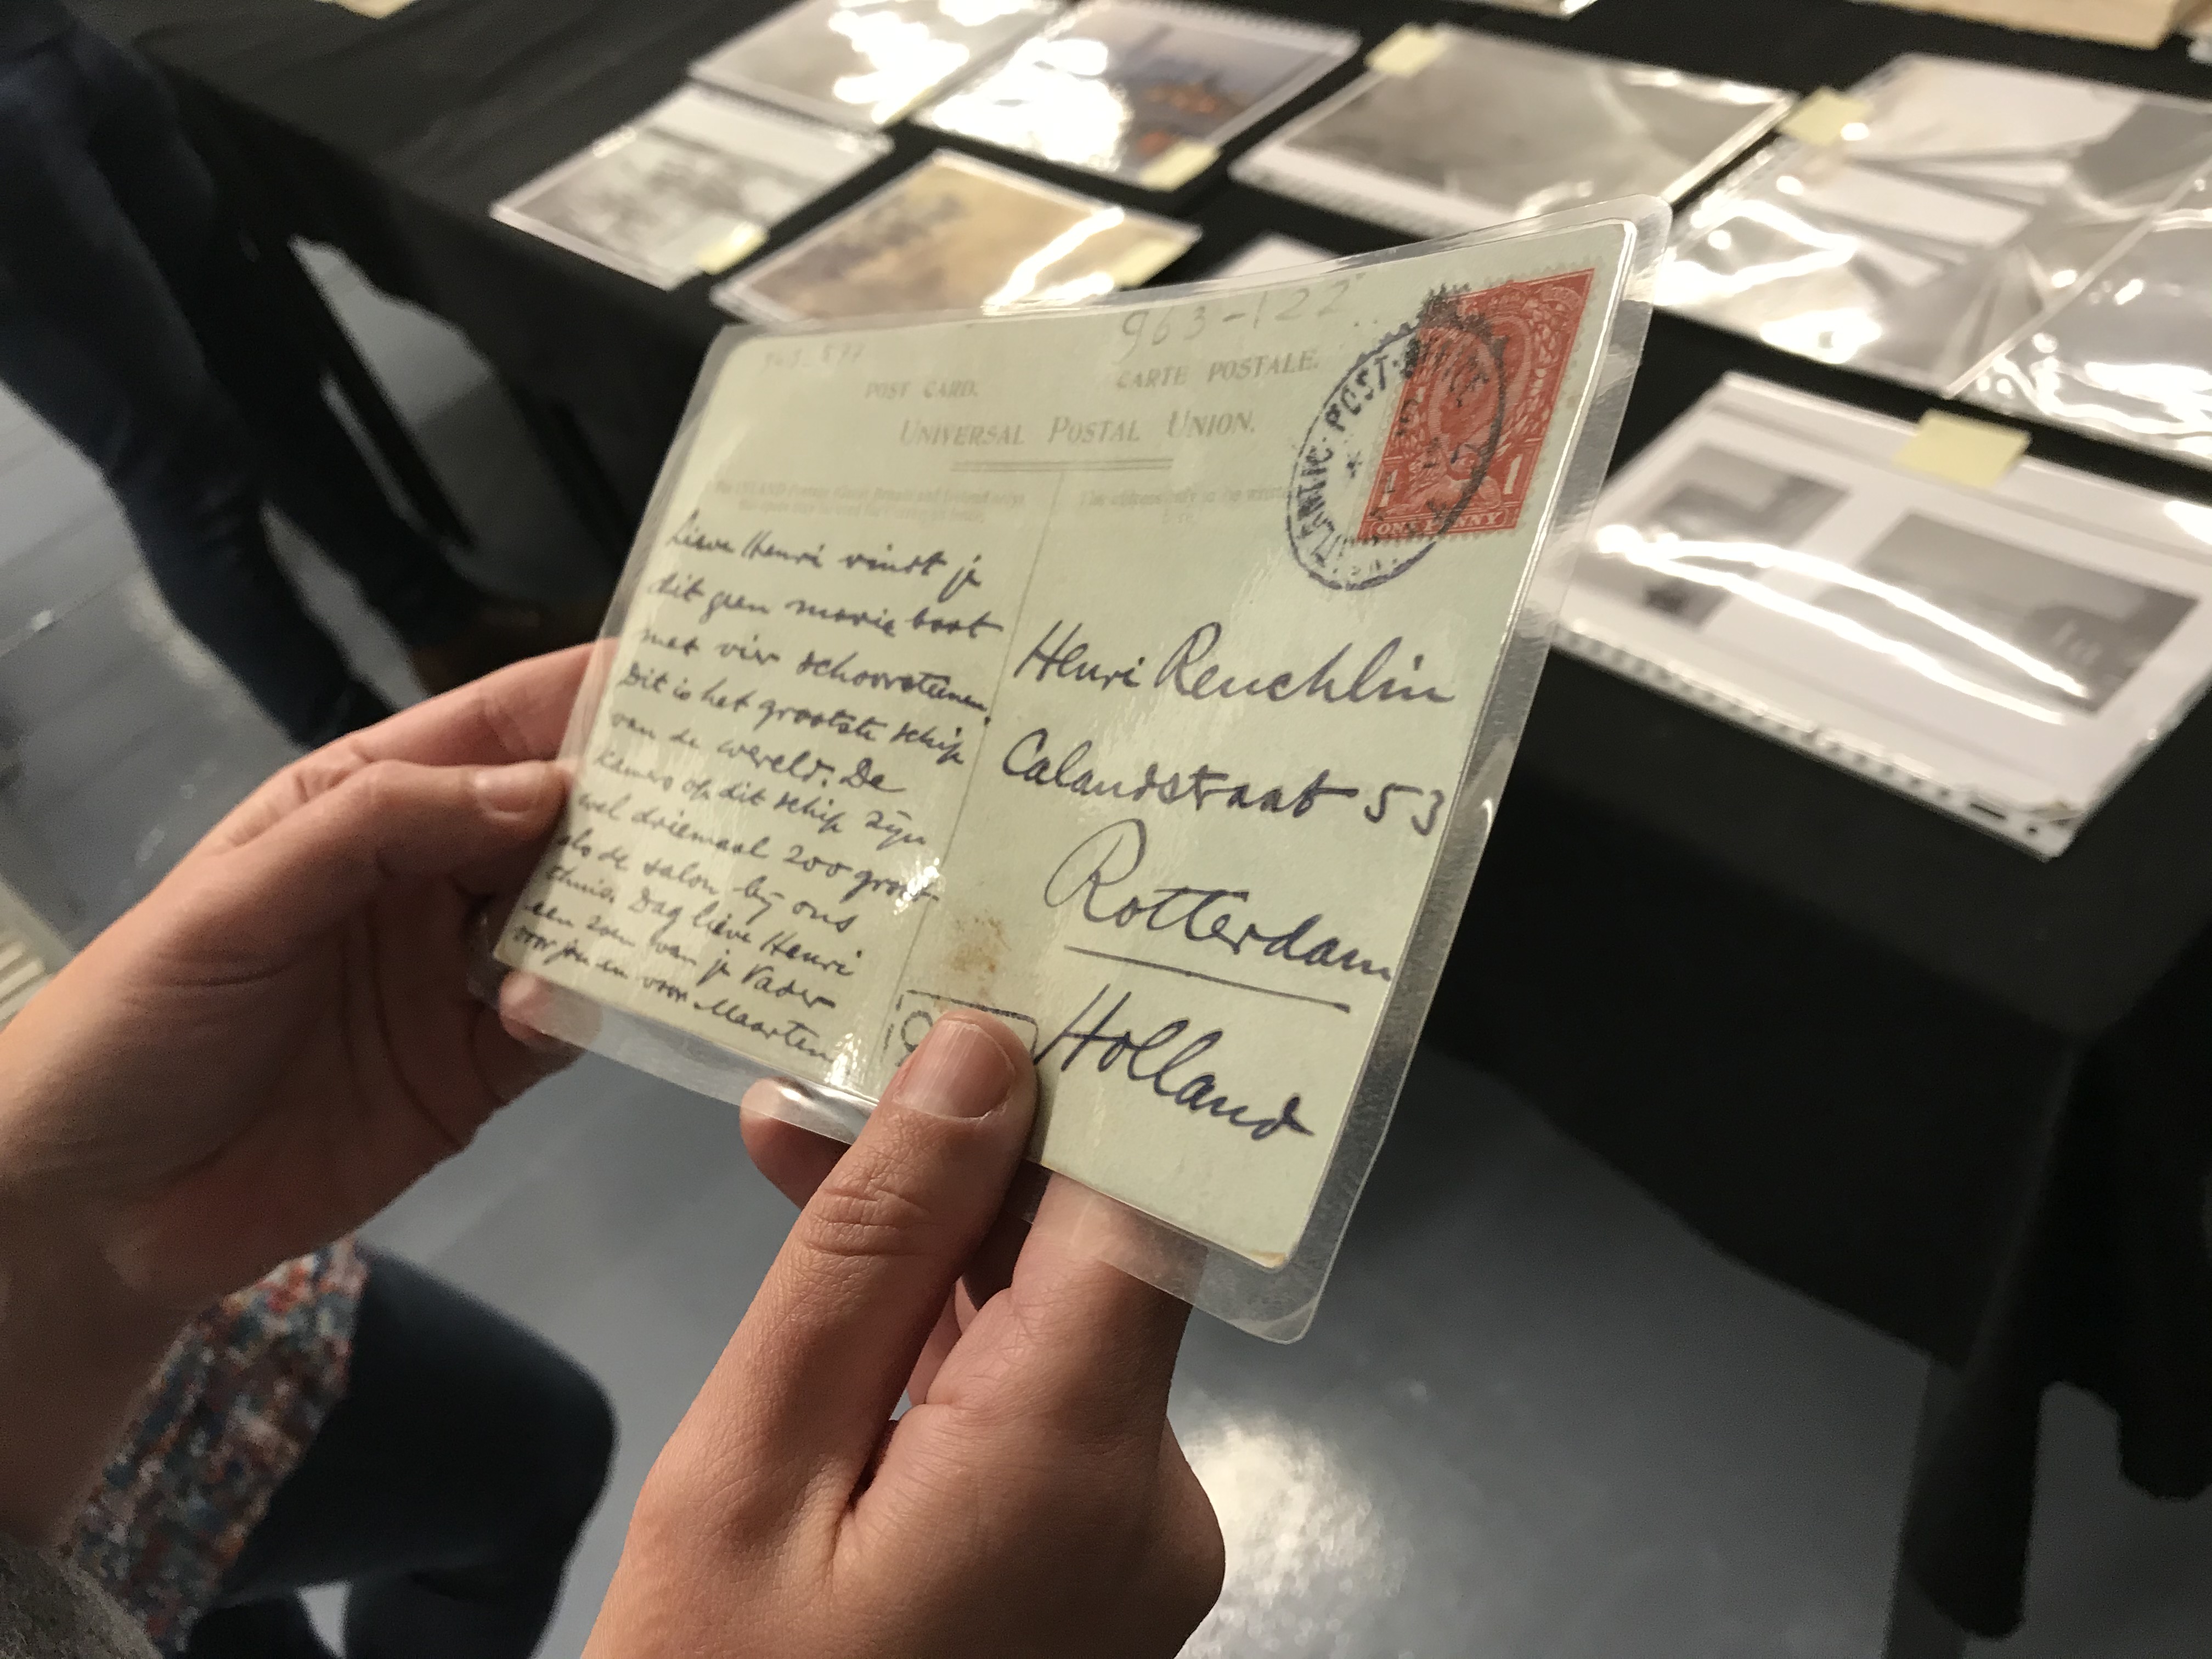 963-122
POST CARD.
CARTE POSTALE.
UNIVERSAL POSTAL UNION.
Lieve Henri vindt je
dit geen mooie boot
met vier schoorsteenen.
Dit is het grootste schip
van de wereld. De
kamers op dit schip zijn
wel driemaal zoo groot
als de salon bij ons
thuis. Dag lieve Henri
een zoen van je Vader
voor jou en voor Maarten
POST
1 1
ONE PENNY
Henri Reuchlin
Calandstraat 53
Rotterdam
Holland